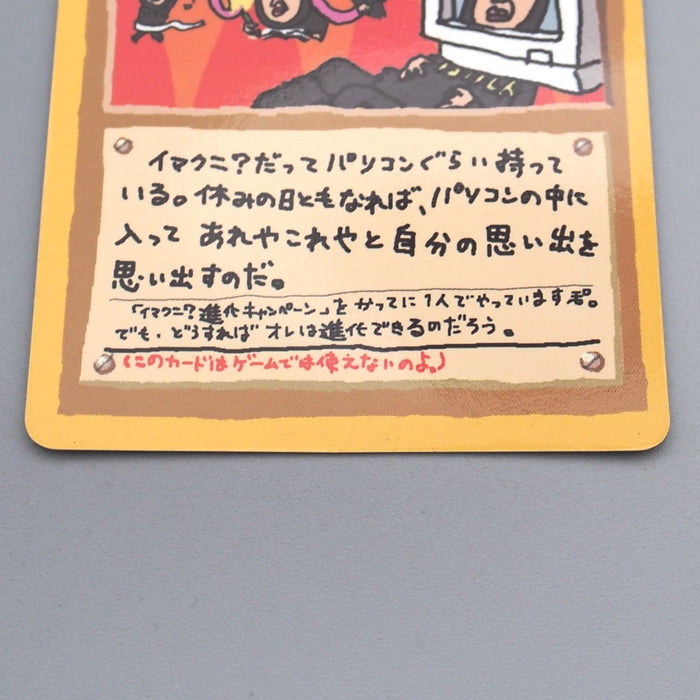 イマクニ?だってパソコンぐらい持って
いる。休みの日ともなれば、パソコンの中に
入って あれやこれやと自分の思い出を
思い出すのだ。
「イマクニ?進化キャンペーン」を かってに1人でやっています君。
でも、どうすれば オレは進化できるのだろう。
(このカードはゲームでは使えないのよ。)